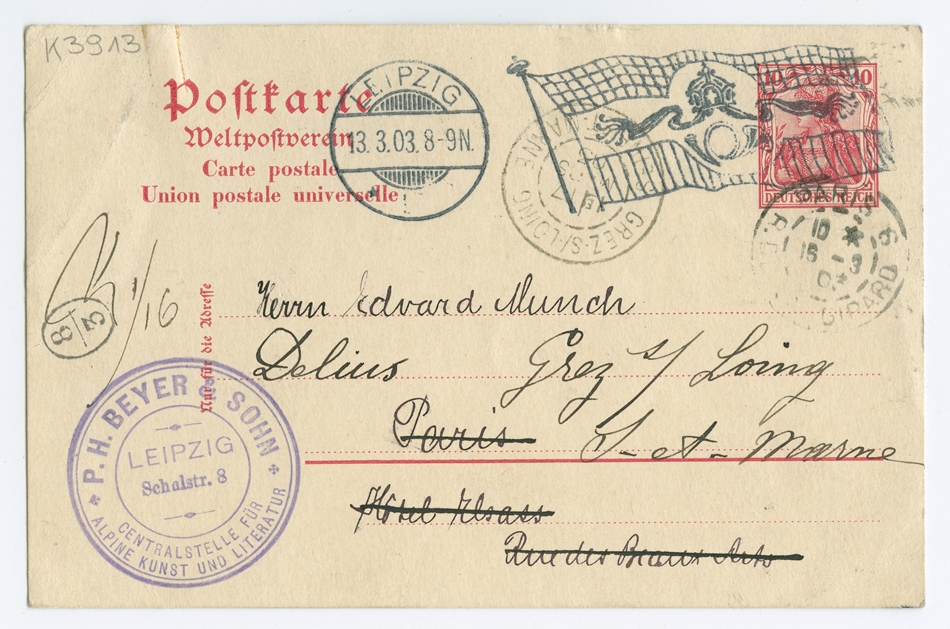 K3913
Postkarte
Weltpostverein
Carte postale
Union postale universelle
LEIPZIG
13.3.03.8-9N.
GREZ-S/-LOING
10 10
DEUTSCHES REICH
PARIS
R. GIRARD
1/16
8/3
Nur für die Adresse
Herrn Edvard Munch
Delius Grez s/ Loing
Paris S-et-Marne
Hôtel Elsass
Rue des Beaux Arts
P. H. BEYER & SOHN
LEIPZIG
Schalstr. 8
CENTRALSTELLE FÜR
ALPINE KUNST UND LITERATUR